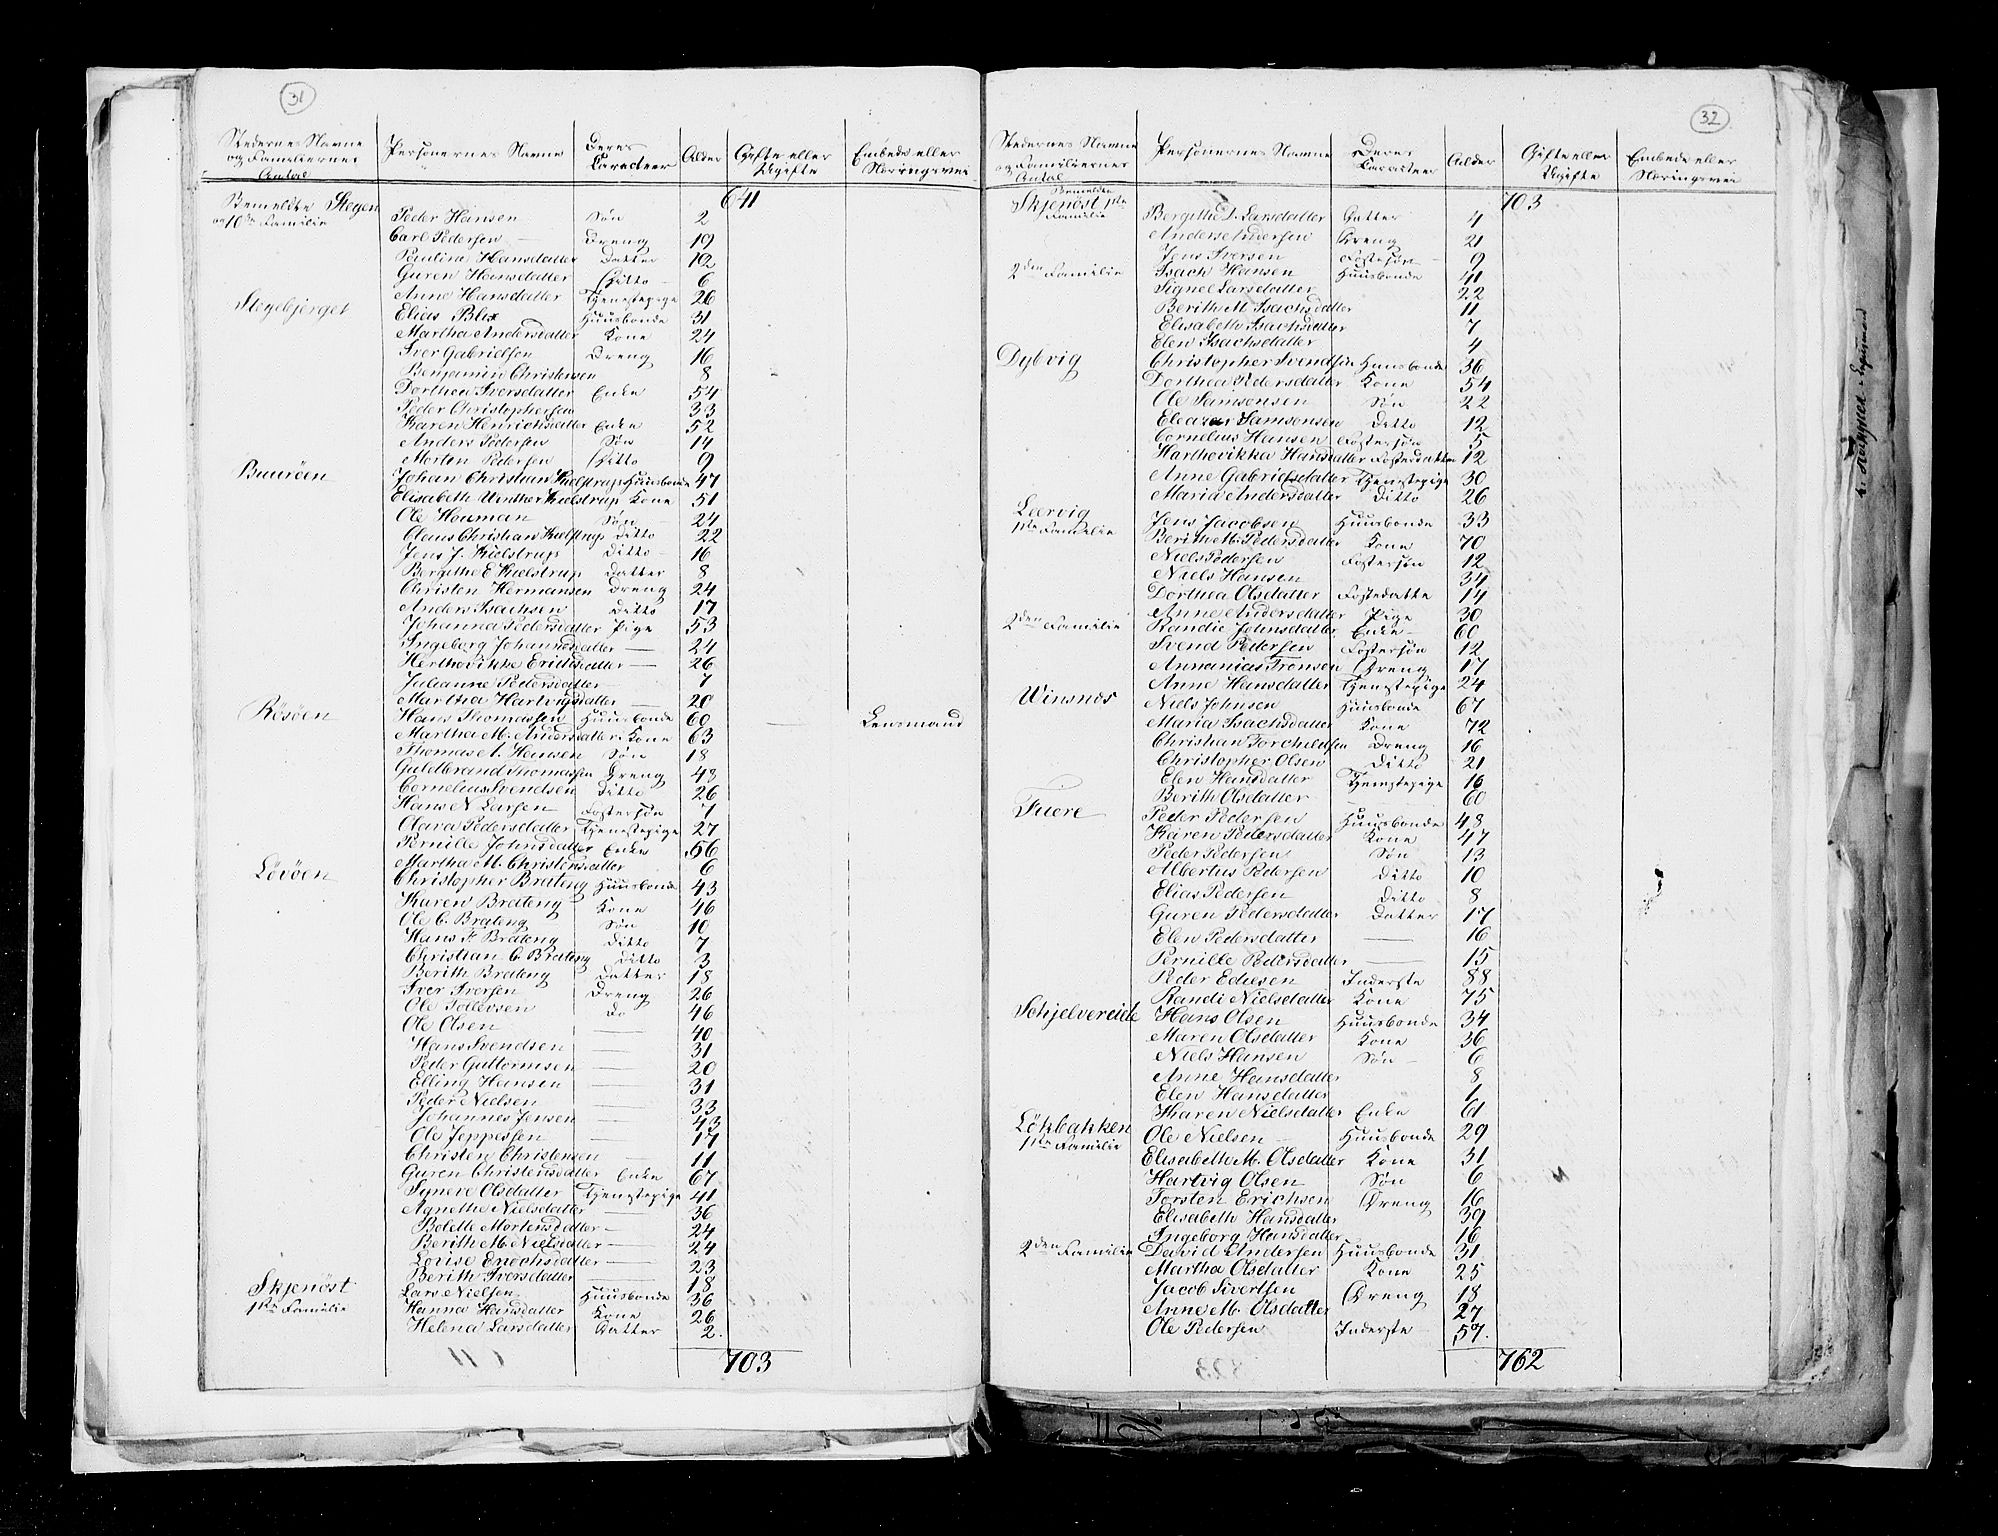 31
Stedernes Navne og Familiernes Antal | Personernes Navne | Deres Caracteer | Alder | Gifte eller Ugifte | Embede eller Næringsvei
Bemeldte Stegen 641
og 10de Familie Peder Hansen Søn 2
Carl Pedersen Dreng 19
Paulina Hansdatter Datter 12
Guren Hansdatter Ditto 6
Anne Hansdatter Tjenestepige 26
Stegebjerget Elias Blix Huusbonde 31
Martha Andersdatter Kone 24
Iver Gabrielsen Dreng 16
Benjamin Christensen 8
Dorthea Iversdatter Enke 54
Peder Christophersen 33
Karen Henrichsdatter Enke 52
Anders Pedersen Søn 14
Morten Pedersen Ditto 9
Buurøen Johan Christian Kielstrup Huusbonde 47
Elisabeth Winther Kielstrup Kone 51
Ole Houman Søn 24
Claus Christian Kielstrup Ditto 22
Jens J. Kielstrup Ditto 16
Bergithe E Kielstrup Datter 8
Christen Hermansen Dreng 24
Anders Isachsen Ditto 17
Johanna Pedersdatter Pige 53
Ingeborg Johannsdatter — 24
Herthovikke Erichsdatter — 26
Julianne Pedersdatter — 7
Martha Hartvigsdatter — 20
Røsøen Hans Thomassen Huusbonde 60 — Lensmand
Martha M. Andersdatter Kone 63
Thomas A. Hansen Søn 18
Guldbrand Thomassen Dreng 43
Cornelius Svendsen Ditto 26
Hans N Larsen Fostersøn 7
Clara Pedersdatter Tjenestepige 27
Pernille Johnsdatter Enke 56
Martha M. Christensdatter 6
Løvøen Christopher Brateng Huusbonde 43
Karen Brateng Kone 46
Ole C. Brateng Søn 10
Hans F Brateng Ditto 7
Christian C. Brateng Ditto 3
Berith Brateng Datter 18
Iver Iversen Dreng 26
Ole Tollevsen Do 46
Ole Olsen — 40
Hans Svendsen — 31
Peder Guttormsen — 20
Elling Hansen — 31
Peder Nielsen — 33
Johannes Jensen — 43
Ole Jeppesen — 17
Christen Christensen — 11
Guren Christensdatter Enke 67
Syneve Olsdatter Tjenestepige 41
Agnethe Nielsdatter — 36
Bolette Mortensdatter — 24
Berith M. Nielsdatter — 24
Lovise Enochsdatter — 23
Berith Iversdatter — 18
Skjenøst Lars Nielsen Huusbonde 36
1ste Familie Hanna Hansdatter Kone 26
Helena Larsdatter Datter 2.
703
32
Stedernes Navne og Familiernes Antal | Personernes Navne | Deres Caracteer | Alder | Gifte eller Ugifte | Embede eller Næringsvei
Bemeldte
Skjenøst 1ste Familie 703
Bergithe L. Larsdatter Datter 4
Anders Andersen Dreng 21
Jens Iversen Fostersøn 9
2den Familie Isach Hansen Huusbonde 41
Signel Larsdatter 22
Berith M Isachsdatter 11
Elisabeth Isachsdatter 7
Elen Isachsdatter 4
Dybvig Christopher Svendsen Huusbonde 36
Dorthea Pedersdatter Kone 54
Ole Samsonsen Søn 22
Eleazar Samsonsen Ditto 12
Cornelius Hansen Fostersøn 5
Harthovikka Hansdatter Fosterdatter 12
Anne Gabrielsdatter Tjenestepige 30
Maria Andersdatter Ditto 26
Leervig 1ste Familie Jens Jacobsen Huusbonde 33
Berith M. Pedersdatter Kone 70
Niels Pedersen Fostersøn 12
Niels Hansen 34
Dorthea Olsdatter Fosterdatter 14
Anne Andersdatter Pige 30
2den Familie Randie Johnsdatter Enke 60
Svend Pedersen Fostersøn 12
Annanias Tronsen Dreng 17
Anne Hansdatter Tjenestepige 24
Winsnes Niels Johnsen Huusbonde 67
Maria Isachsdatter Kone 72
Christian Torchildsen Dreng 16
Christopher Olsen Ditto 21
Elen Hansdatter Tjenestepige 16
Berith Olsdatter 60
Fuere Peder Pedersen Huusbonde 48
Karen Pedersdatter Kone 47
Peder Pedersen Søn 13
Albertus Pedersen Ditto 10
Elias Pedersen Ditto 8
Guren Pedersdatter Datter 17
Elen Pedersdatter — 16
Pernille Pedersdatter — 15
Peder Ediesen Inderste 88
Randi Nielsdatter Kone 75
Schjelvereide Hans Olsen Huusbonde 34
Maren Olsdatter Kone 36
Niels Hansen Søn 6
Anne Hansdatter 8
Elen Hansdatter 1
Karen Nielsdatter Enke 61
Løkbakken Ole Nielsen Huusbonde 29
1ste Familie Elisabeth M. Olsdatter Kone 31
Hartvig Olsen Søn 6
Torsten Erichsen Dreng 16
Elisabeth Hansdatter 39
Ingeborg Hansdatter 16
2den Familie David Andersen Huusbonde 31
Martha Olsdatter Kone 25
Jacob Sivertsen Dreng 18
Anne M. Olsdatter 27
Ole Pedersen Inderste 57.
762